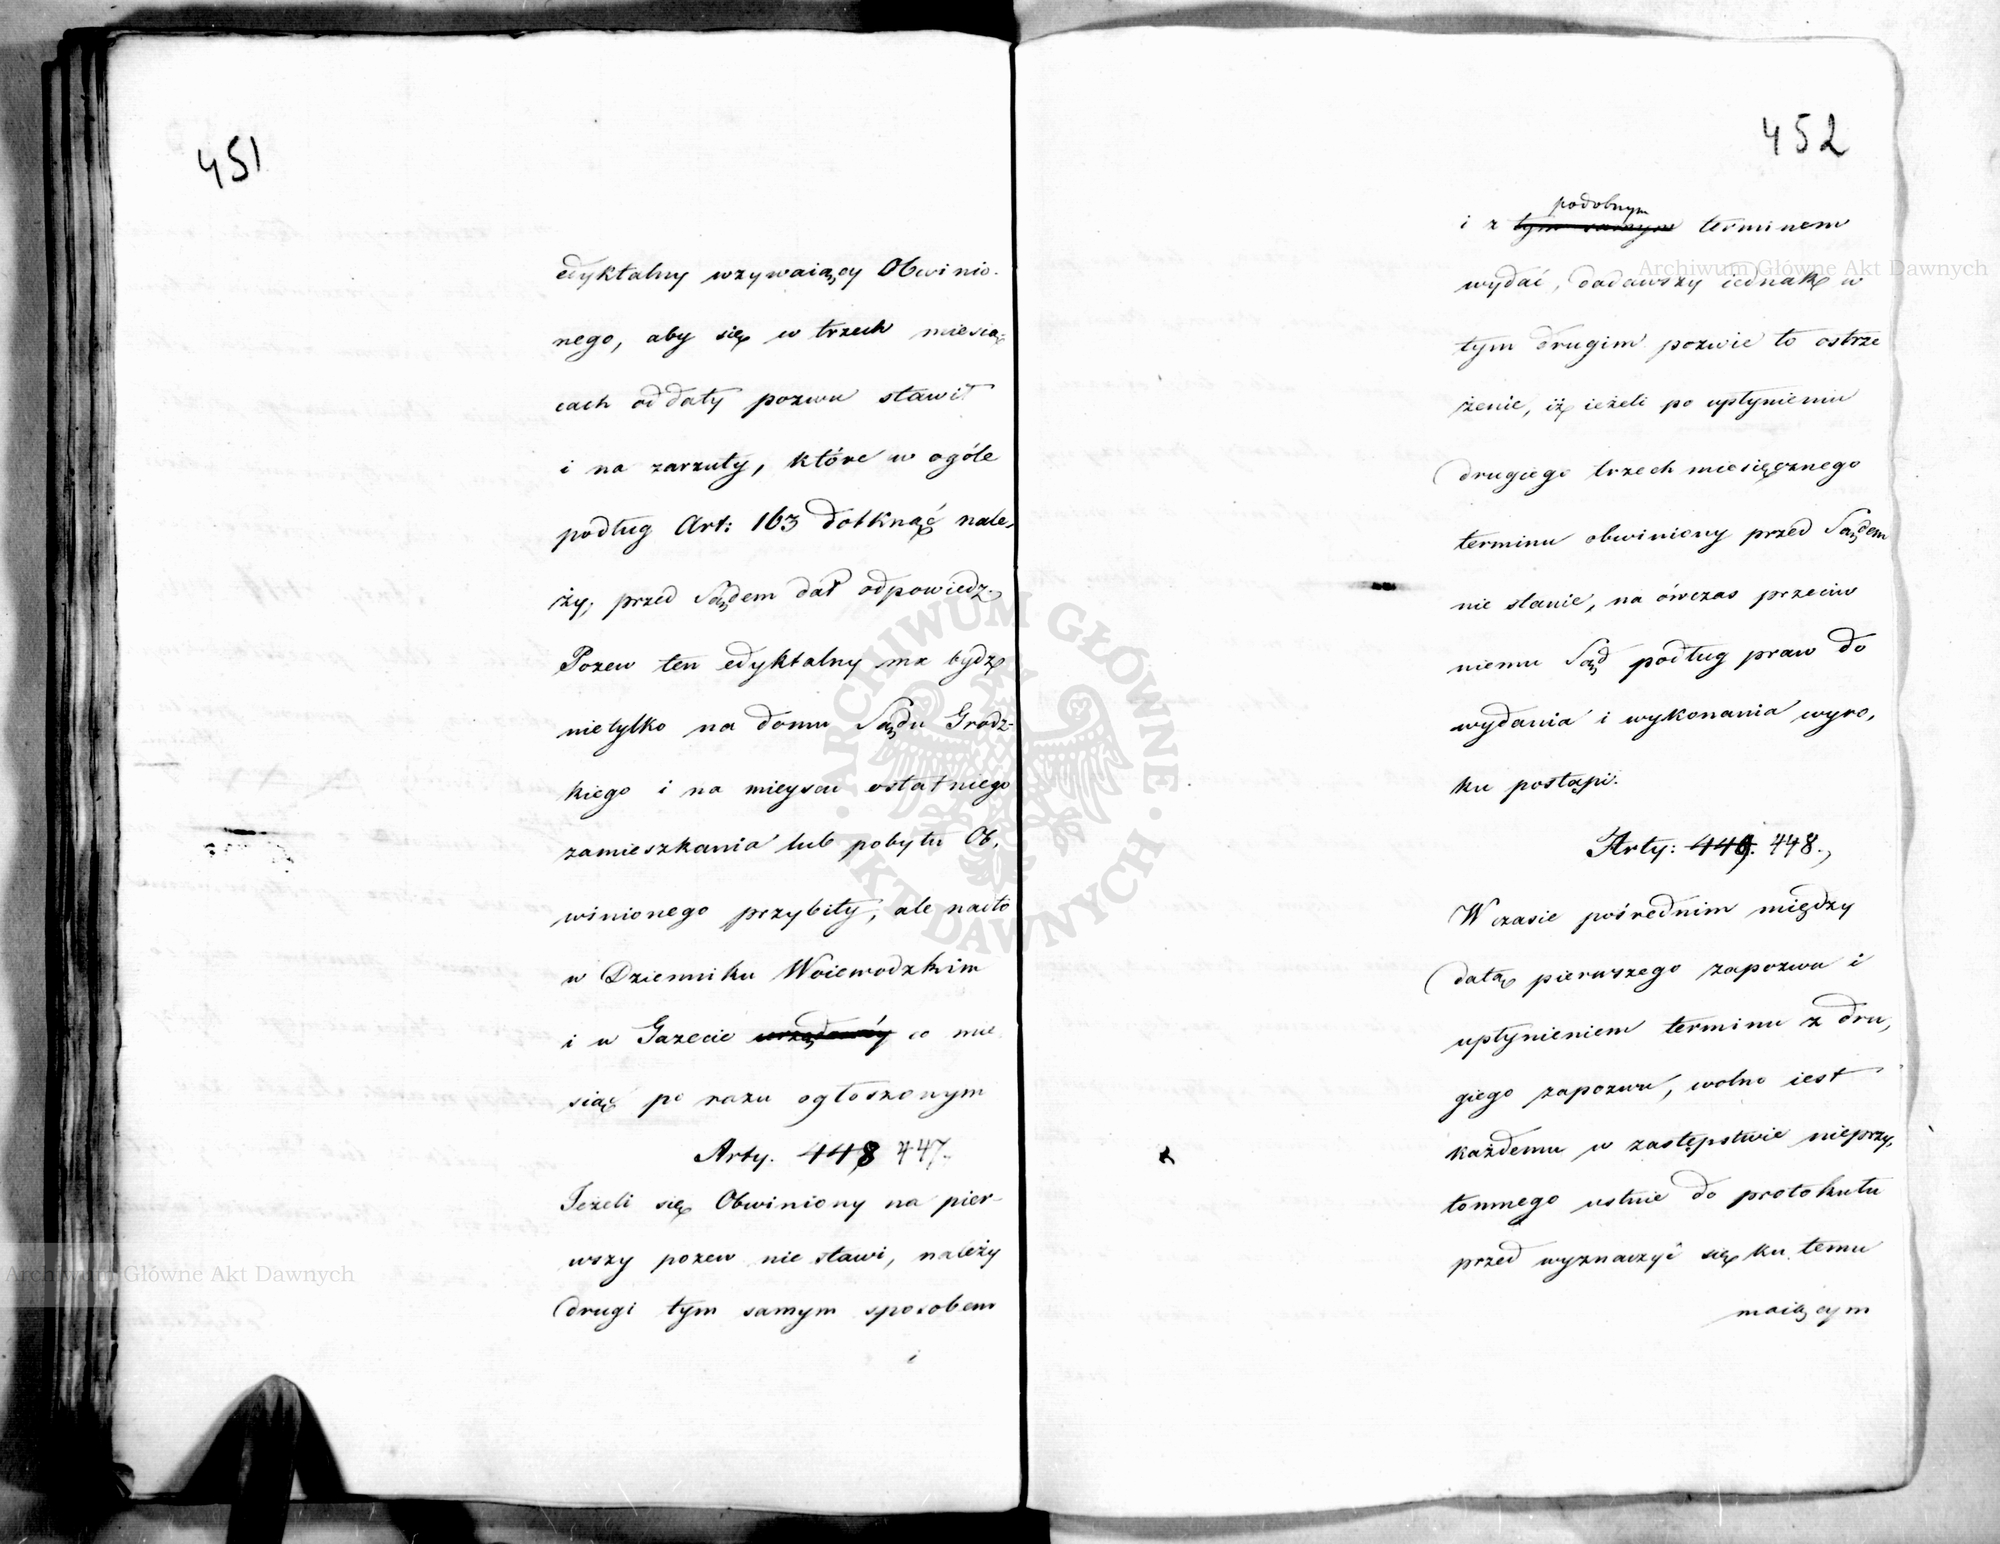 451
edyktalny wzywaiący Obwinio-
nego, aby się w trzech miesią-
cach od daty pozwu stawił
i na zarzuty, które w ogóle
podług Art: 163 dotknąć nale-
ży, przed Sądem dał odpowiedz.
Pozew ten edyktalny ma bydz
nietylko na domu Sądu Grodz-
kiego i na mieyscu ostatniego
zamieszkania lub pobytu Ob-
winionego przybity, ale nadto
w Dzienniku Woiewodzkim
i w Gazecie urzędowéy co mie
siąc po razu ogłoszonym
Arty. 448 447.
Jeżeli się Obwiniony na pier-
wszy pozew nie stawi, należy
drugi tym samym sposobem
i
452
podobnym
i z tym samym terminem
wydać, dodawszy iednak w
tym drugim pozwie to ostrze
żenie, iż ieżeli po upłynieniu
drugiego trzech miesięcznego
terminu obwiniony przed Sądem
nie stanie, na ówczas przeciw
niemu Sąd podług praw do
wydania i wykonania wyro-
ku postąpi.
Arty: 449. 448.
W czasie pośrednim między
datą pierwszego zapozwu i
upłynieniem terminu z dru-
giego zapozwu, wolno iest
każdemu w zastępstwie nieprzy-
tomnego ustnie do protokułu
przed wyznaczyć się ku temu
maiącym
Archiwum Główne Akt Dawnych
Archiwum Główne Akt Dawnych
ARCHIWUM GŁÓWNE · AKT DAWNYCH ·